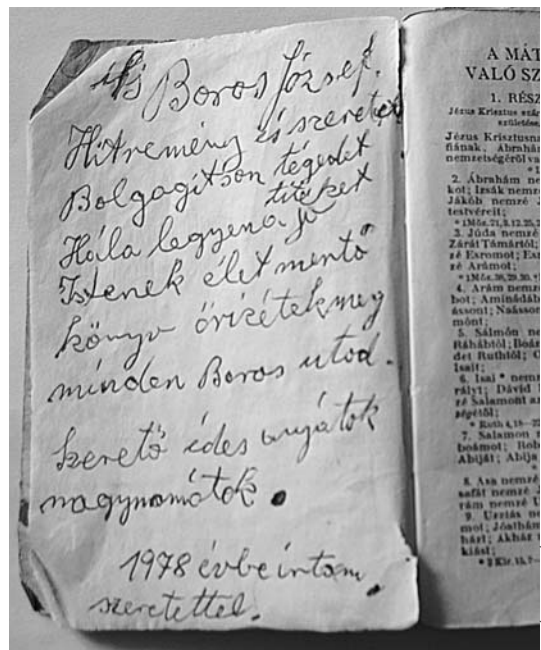 ifj Boros József.
Hit remény és szeretet
Bolgagítson tégedet
titéket
Hála legyen a jó
Istenek élet mentő
könyv őrizétek meg
minden Boros utód.
Szerető édes anyátok
nagynamátok.
1978 évbe írtam
szeretettel.
A MÁT
VALÓ SZ
1. RÉSZ
Jézus Krisztus szár
születése.
Jézus Krisztusna
fiának, Ábrahám
nemzetségéről va
2. Ábrahám ne
kot; Izsák nemz
Jákób nemzé J
testvéreit;
3. Júda nemzé
Zárát Támártól;
zé Esromot; Esr
zé Arámot;
4. Arám nemz
bot; Aminádáb
ássont; Naásson
mónt;
5. Sálmón ne
Ráhábtól; Boáz
det Ruthtól; O
Isait;
6. Isai * nemz
rályt; Dávid
zé Salamont az
ségétől;
* Ruth 4,18–22
7. Salamon n
boámot; Rob
Abiját; Abija
8. Asa nemzé
safát nemzé J
rám nemzé U
9. Uzziás ne
mot; Jóathám
házt; Akház n
kiást;